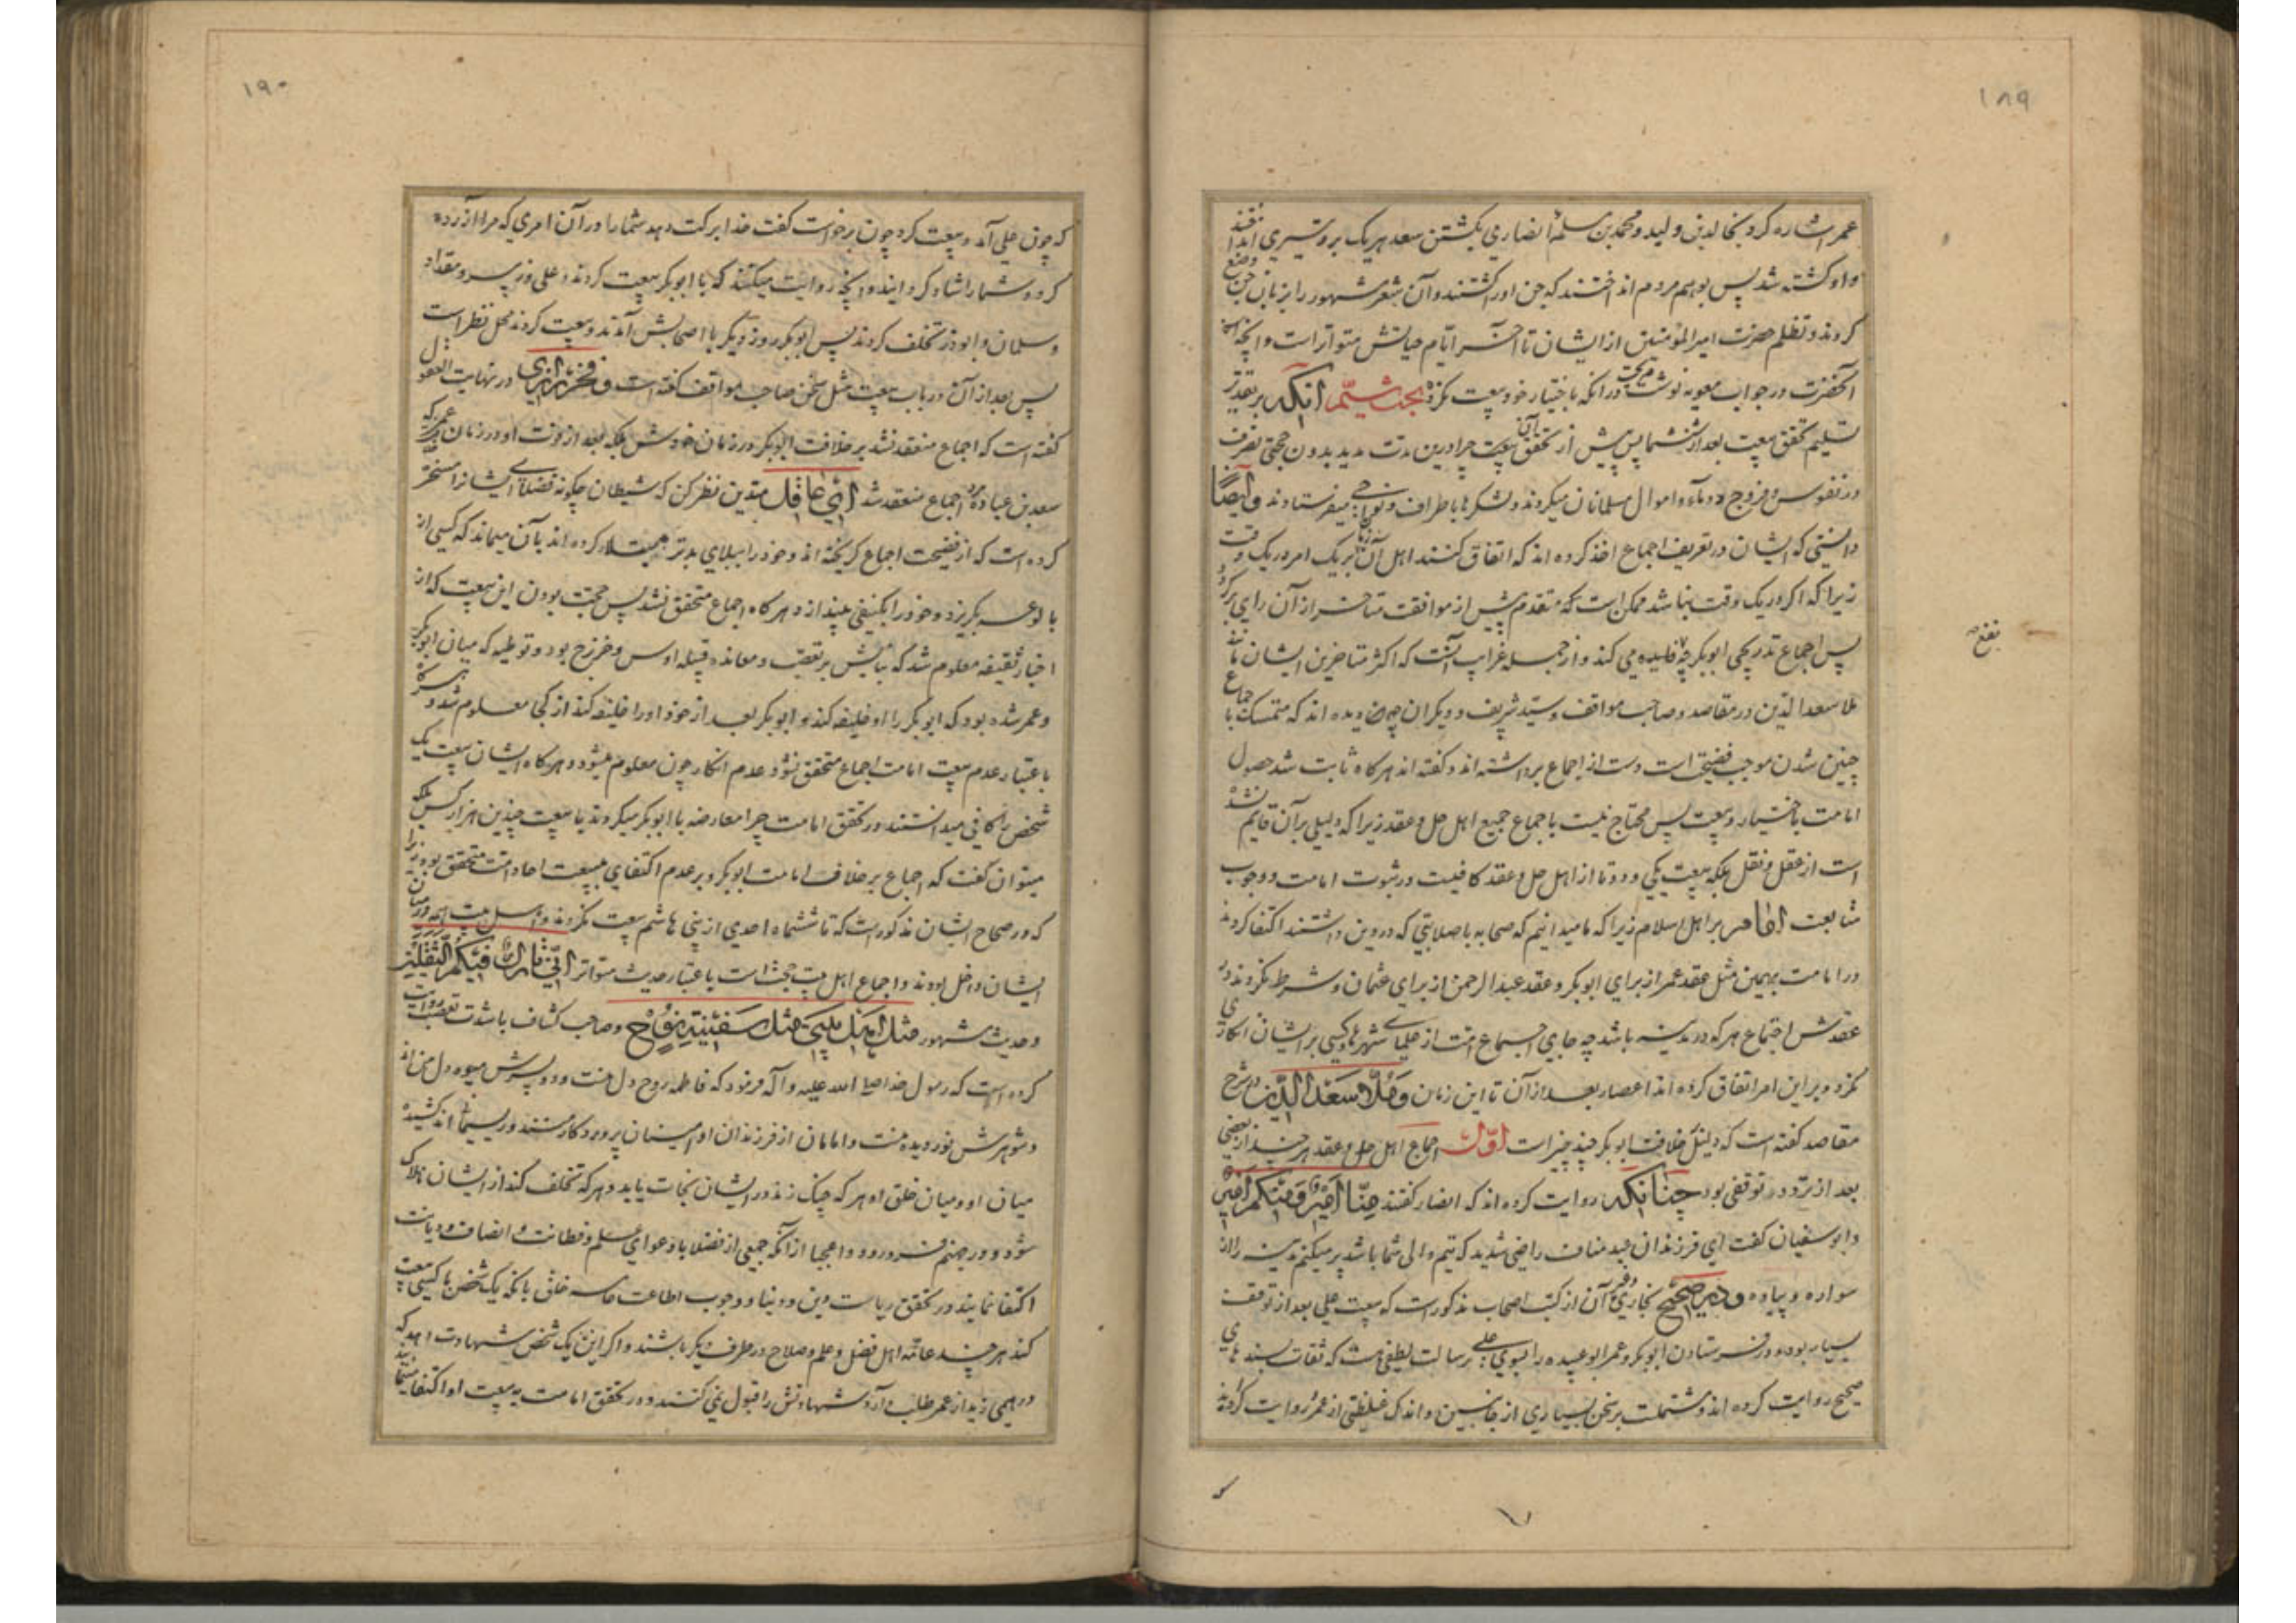 ۱۸۹
عمر اشاره کرد بخالد بن ولید و محمد بن سلمه انصاری بکشتن سعد هر یک بر وتیری انداختند
و او کشته شد پس بوهم مردم انداختند که جن او را کشتند و آن شعر مشهور را بزبان جن وضع
کردند و تظلم حضرت امیر المؤمنین از ایشان تا آخر ایام حیاتش متواتر است و آنچه
آنحضرت در جواب معویه نوشت در آنکه باختیار خود بیعت نکرده بحث ششم آنکه بر تقدیر
تسلیم تحقق بیعت بعد از ششماه پس پیش از تحقق آن بیعت چرا درین مدت مدید بدون حجتی تصرف
در نفوس و فروج و دماء و اموال مسلمانان میکردند و لشکرها باطراف و نواحی میفرستادند و ایضا
دانستی که ایشان در تعریف اجماع اخذ کرده اند که اتفاق کنند اهل آن زمان بر یک امر در یک وقت
زیرا که اگر در یک وقت نباشد ممکن است که متقدم پیش از موافقت متاخر از آن رای برگردد
پس اجماع تدریجی ابوبکر چه فایده می کند و از جمله غرایب آنست که اکثر متاخرین ایشان مانند
ملا سعد الدین در مقاصد و صاحب مواقف و سید شریف و دیگران چون دیده اند که متمسک باجماع
چنین شدن موجب فضیحت است دست از اجماع برداشته اند و گفته اند هرگاه ثابت شد حصول
امامت باختیار و بیعت پس محتاج نیست باجماع جمیع اهل حل و عقد زیرا که دلیلی بر آن قایم نشده
است از عقل و نقل بلکه بیعت یکی و دو تا از اهل حل و عقد کافیست در ثبوت امامت و وجوب
متابعت امام بر اهل اسلام زیرا که ما میدانیم که صحابه با صلابتی که در دین داشتند اکتفا کردند
در امامت بهمین مثل عقد عمر از برای ابوبکر و عقد عبد الرحمن از برای عثمان و شرط نکردند در
عقدش اجتماع هر که در مدینه باشد چه جای اجماع امت از علمای شهرها و کسی بر ایشان انکاری
نکرد و بر این امر اتفاق کرده اند اعصار بعد از آن تا این زمان و ملا سعد الدین در شرح
مقاصد گفته است که دلیل خلافت ابوبکر چند چیز است اول اجماع اهل حل و عقد هر چند از بعضی
بعد از تردد و توقفی بود چنانکه روایت کرده اند که انصار گفتند منا امیر و منکم امیر
و ابو سفیان گفت ای فرزندان عبد مناف راضی شدید که تیم والی شما باشد پر میکنم مدینه را از
سواره و پیاده و در صحیح بخاری و غیر آن از کتب اصحاب مذکور است که بیعت علی بعد از توقف
بسیار بوده و در فرستادن ابوبکر و عمر ابو عبیده را بسوی علی رسالت لطیفی هست که ثقات بسندهای
صحیح روایت کرده اند و مشتملست بر سخن بسیاری از جانبین و اندک غلظتی از عمر و روایت کرده اند
۱۹۰
که چون علی آمد و بیعت کرد چون برخاست گفت خدا برکت دهد شما را در آن امری که مرا آزرده
کرد و شما را شاد گردانید و آنچه روایت میکنند که با ابوبکر بیعت کردند و علی و زبیر و مقداد
و سلمان و ابوذر تخلف کردند پس ابوبکر روز دیگر با اصحابش آمدند و بیعت کردند محل نظر است
پس بعد از آن در باب بیعت مثل سخن صاحب مواقف گفته است و فخر رازی در نهایت العقول
گفته است که اجماع منعقد نشد بر خلافت ابوبکر در زمان خودش بلکه بعد از فوت او در زمان عمر که
سعد بن عباده مرد اجماع منعقد شد ای عاقل متدین نظر کن که شیطان چگونه فضلای ایشانرا مسخر
کرده است که از فضیحت اجماع گریخته اند و خود را ببلای بدتر مبتلا کرده اند بآن میماند که کسی از
بالوعه بگریزد و خود را بکنیفی بیندازد هرگاه اجماع متحقق نشد پس حجت بودن این بیعت که از
اخبار ثقیفه معلوم شد که بنایش بر تعصب و معانده قبیله اوس و خزرج بود و توطیه که میان ابوبکر
و عمر شده بود که ابوبکر را او خلیفه کند و ابوبکر بعد از خود او را خلیفه کند از کجا معلوم شد و هرگاه
باعتبار عدم بیعت امامت اجماع متحقق نشود عدم انکار چون معلوم میشود و هرگاه ایشان بیعت یک
شخص را کافی میدانستند در تحقق امامت چرا معارضه با ابوبکر میکردند با بیعت چندین هزار کس بلکه
میتوان گفت که اجماع بر خلاف امامت ابوبکر و بر عدم اکتفای ببیعت احاد امت متحقق بوده زیرا
که در صحاح ایشان مذکور است که تا ششماه احدی از بنی هاشم بیعت نکردند و اهل بیت همه در میان
ایشان داخل بودند و اجماع اهل بیت حجت است باعتبار حدیث متواتر انی تارک فیکم الثقلین
و حدیث مشهور مثل اهل بیتی مثل سفینة نوح و صاحب کشاف با شدت تعصب روایت
کرده است که رسول خدا صلی الله علیه و آله فرمود که فاطمه روح دل منست و دو پسرش میوه دل من اند
و شوهرش نور دیده منست و امامان از فرزندان او امینان پروردگار منند و ریسمانی اند کشیده
میان او و میان خلق او هر که چنگ زند در ایشان نجات یابد و هر که تخلف کند از ایشان هلاک
شود و در جهنم فرو رود و واعجبا از آنکه جمعی از فضلا با دعوای علم و فطانت و انصاف و دیانت
اکتفا نمایند در تحقق ریاست دین و دنیا و وجوب اطاعت کافه خلق بآنکه یک شخص با کسی بیعت
کند هر چند عامّه اهل فضل و علم و صلاح در طرف دیگر باشند و اگر این یک شخص شهادت دهد که
درهمی زید از عمر طلب دارد شهادتش را قبول نمی کنند و در تحقق امامت به بیعت او اکتفا مینمایند